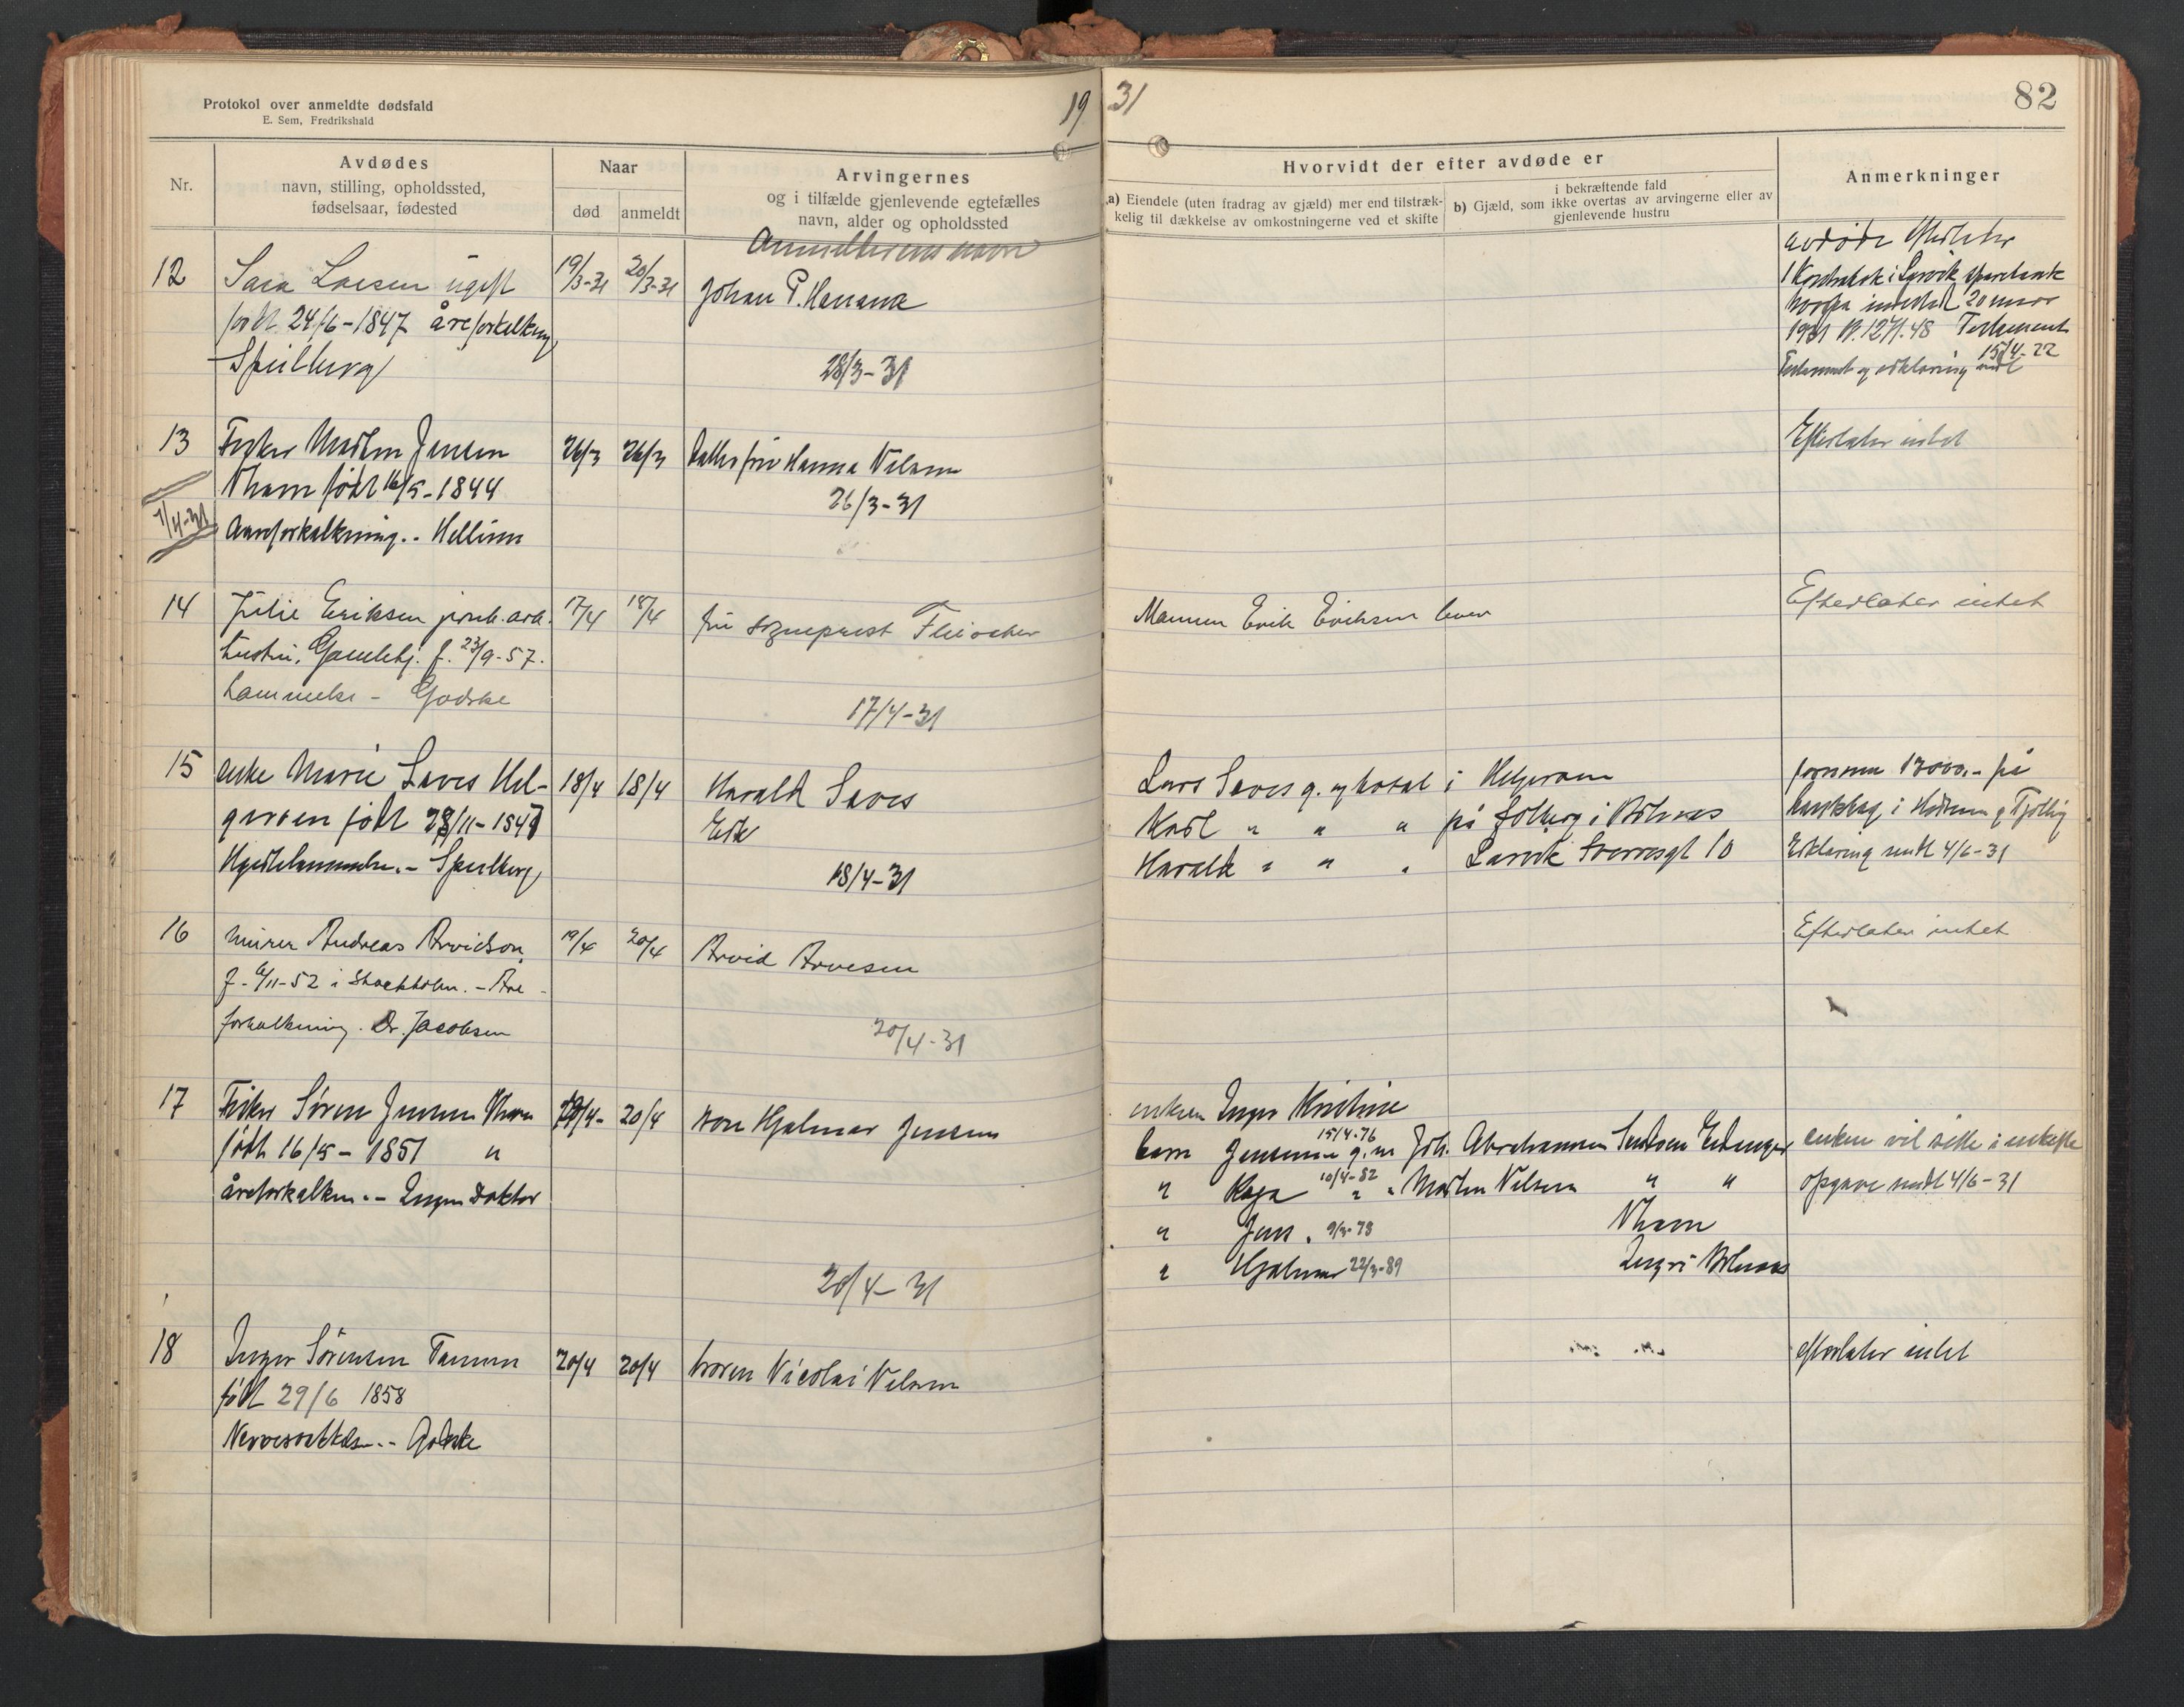 Protokol over anmeldte dødsfald
E. Sem, Fredrikshald
19 31
82
Nr.
Avdødes
navn, stilling, opholdssted,
fødselsaar, fødested
Naar
død
anmeldt
Arvingernes
og i tilfælde gjenlevende egtefælles
navn, alder og opholdssted
Hvorvidt der efter avdøde er
a) Eiendele (uten fradrag av gjæld) mer end tilstræk-
kelig til dækkelse av omkostningerne ved et skifte
b) Gjæld, som
i bekræftende fald
ikke overtas av arvingerne eller av
gjenlevende hustru
Anmerkninger
Anmelderens navn
12 Sara Larsen ugift 19/3-31 20/3-31 Johan P. Hansen
født 24/6-1847 åreforkalkning
Speilberg 28/3-31
avdøde efterlater
1 Kontrabok i Larvik sparebank
1931 Testament
15/4-22
Testament og erklæring
13 Fisker Jensen 26/3 26/3 datter fru Hanna Nilsen
født 16/5-1844 26/3-31
Aareforkalkning.- Hellinn
1/4-31
Efterlater intet
14 Julie Eriksen jernb.arb. 17/4 18/4 fru sogneprest Fleischer
hustru, f. 23/9-57.
Lammelse - Godske 17/4-31
Mannen Erik Eriksen lever
Efterlater intet
15 enke Marie Saves Hel- 18/4 18/4 Harald Saves
geroen født 28/11-1847
Hjertelammelse.- Speilberg 18/4-31
Lars Saves g. og bosat i Helgeroa
Karl " " " på Solberg i Brunlanes
Harald " " " Larvik Sverresgt 10
13000,- på
i Hedrum og Tjølling
Erklæring sendt 4/6-31
16 murer Andreas Arvidson, 19/4 20/4 Arvid Arvesen
f. 6/11-52 i Stockholm. - Åre-
forkalkning. Dr. Jacobsen
20/4-31
Efterlater intet
17 Fisker Søren Jensen 19/4- 20/4 søn Hjalmar Jensen
født 16/5-1851 "
åreforkalkn.- Ingen Doktor
20/4-31
enken Inger Kristine
barn 15/4-76 g. m Joh. Abrahamsen
" Kaja 10/4-82 " " Nilsen " "
" Jens. 9/3-78
" Hjalmar 22/3-89
enken vil sitte i uskifte
opgave sendt 4/6-31
18 Inger Sørensen 20/4 20/4 broren Nicolai Nilsen
født 29/6 1858
- Godske
efterlater intet